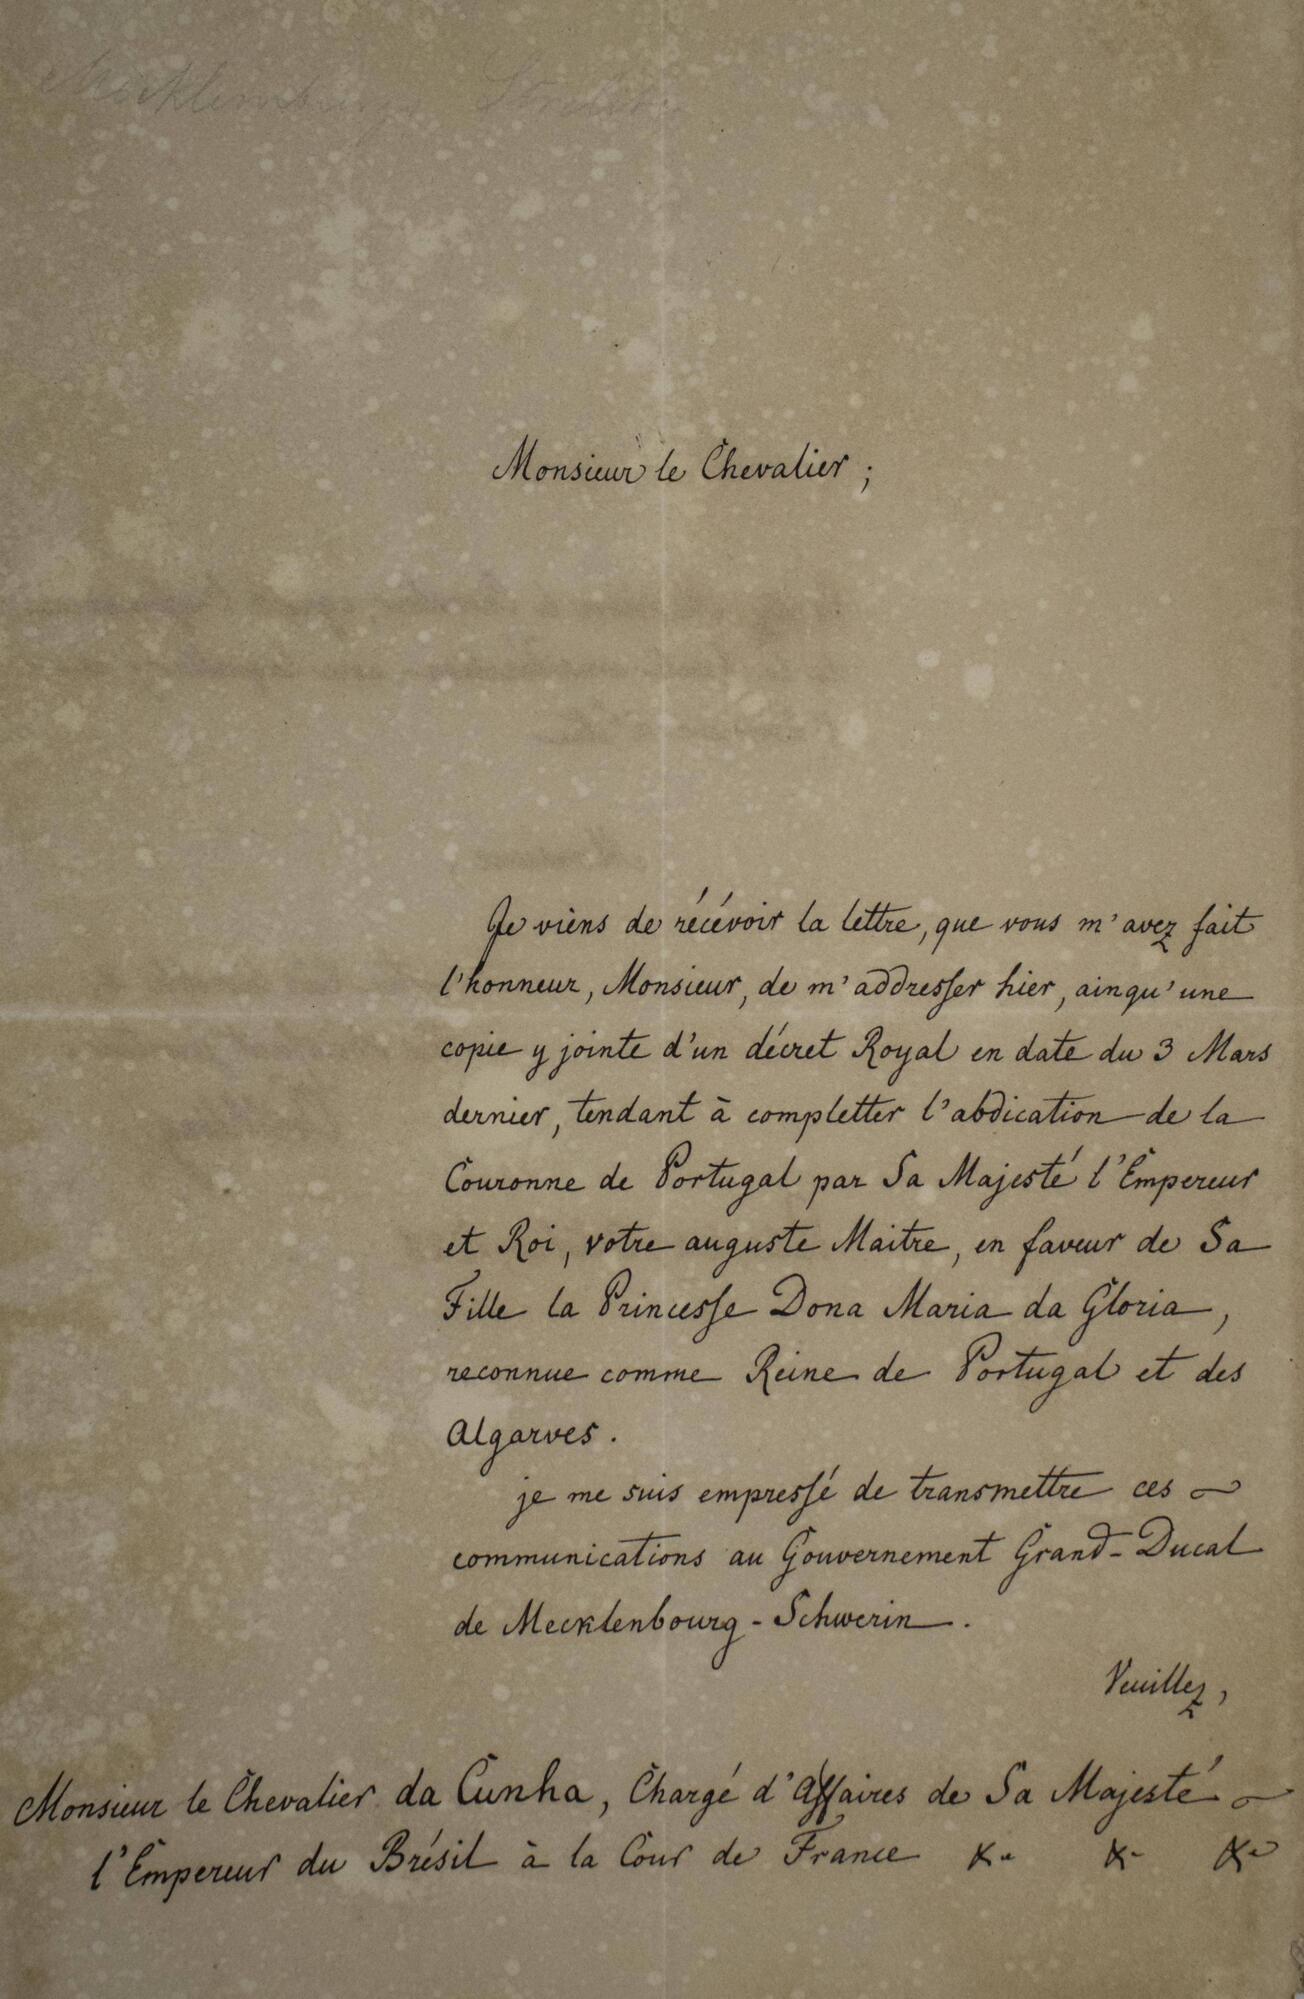 Mecklembourg Strelitz
Monsieur le Chevalier ;
Je viens de récévoir la lettre, que vous m'avez fait
l'honneur, Monsieur, de m'addresser hier, ainqu'une
copie y jointe d'un décret Royal en date du 3 Mars
dernier, tendant à completter l'abdication de la
Couronne de Portugal par Sa Majesté l'Empereur
et Roi, votre auguste Maitre, en faveur de Sa
Fille la Princesse Dona Maria da Gloria,
reconnue comme Reine de Portugal et des
Algarves.
je me suis empressé de transmettre ces
communications au Gouvernement Grand-Ducal
de Mecklenbourg-Schwerin.
Veuillez,
Monsieur le Chevalier da Cunha, Chargé d'Affaires de Sa Majesté
l'Empereur du Brésil à la Cour de France